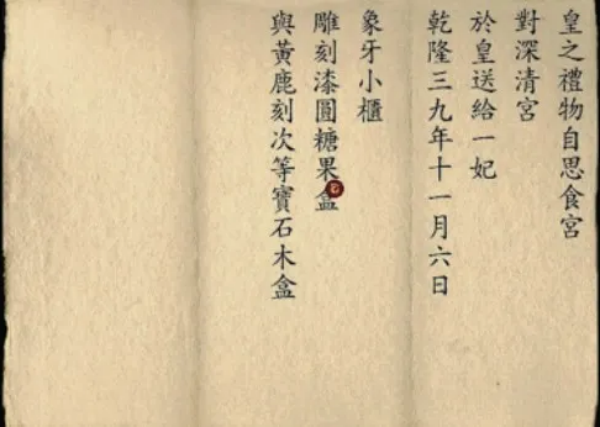 皇之禮物自思食宮
對深清宮
於皇送給一妃
乾隆三九年十一月六日
象牙小櫃
雕刻漆圓糖果盒
與黃鹿刻次等寶石木盒